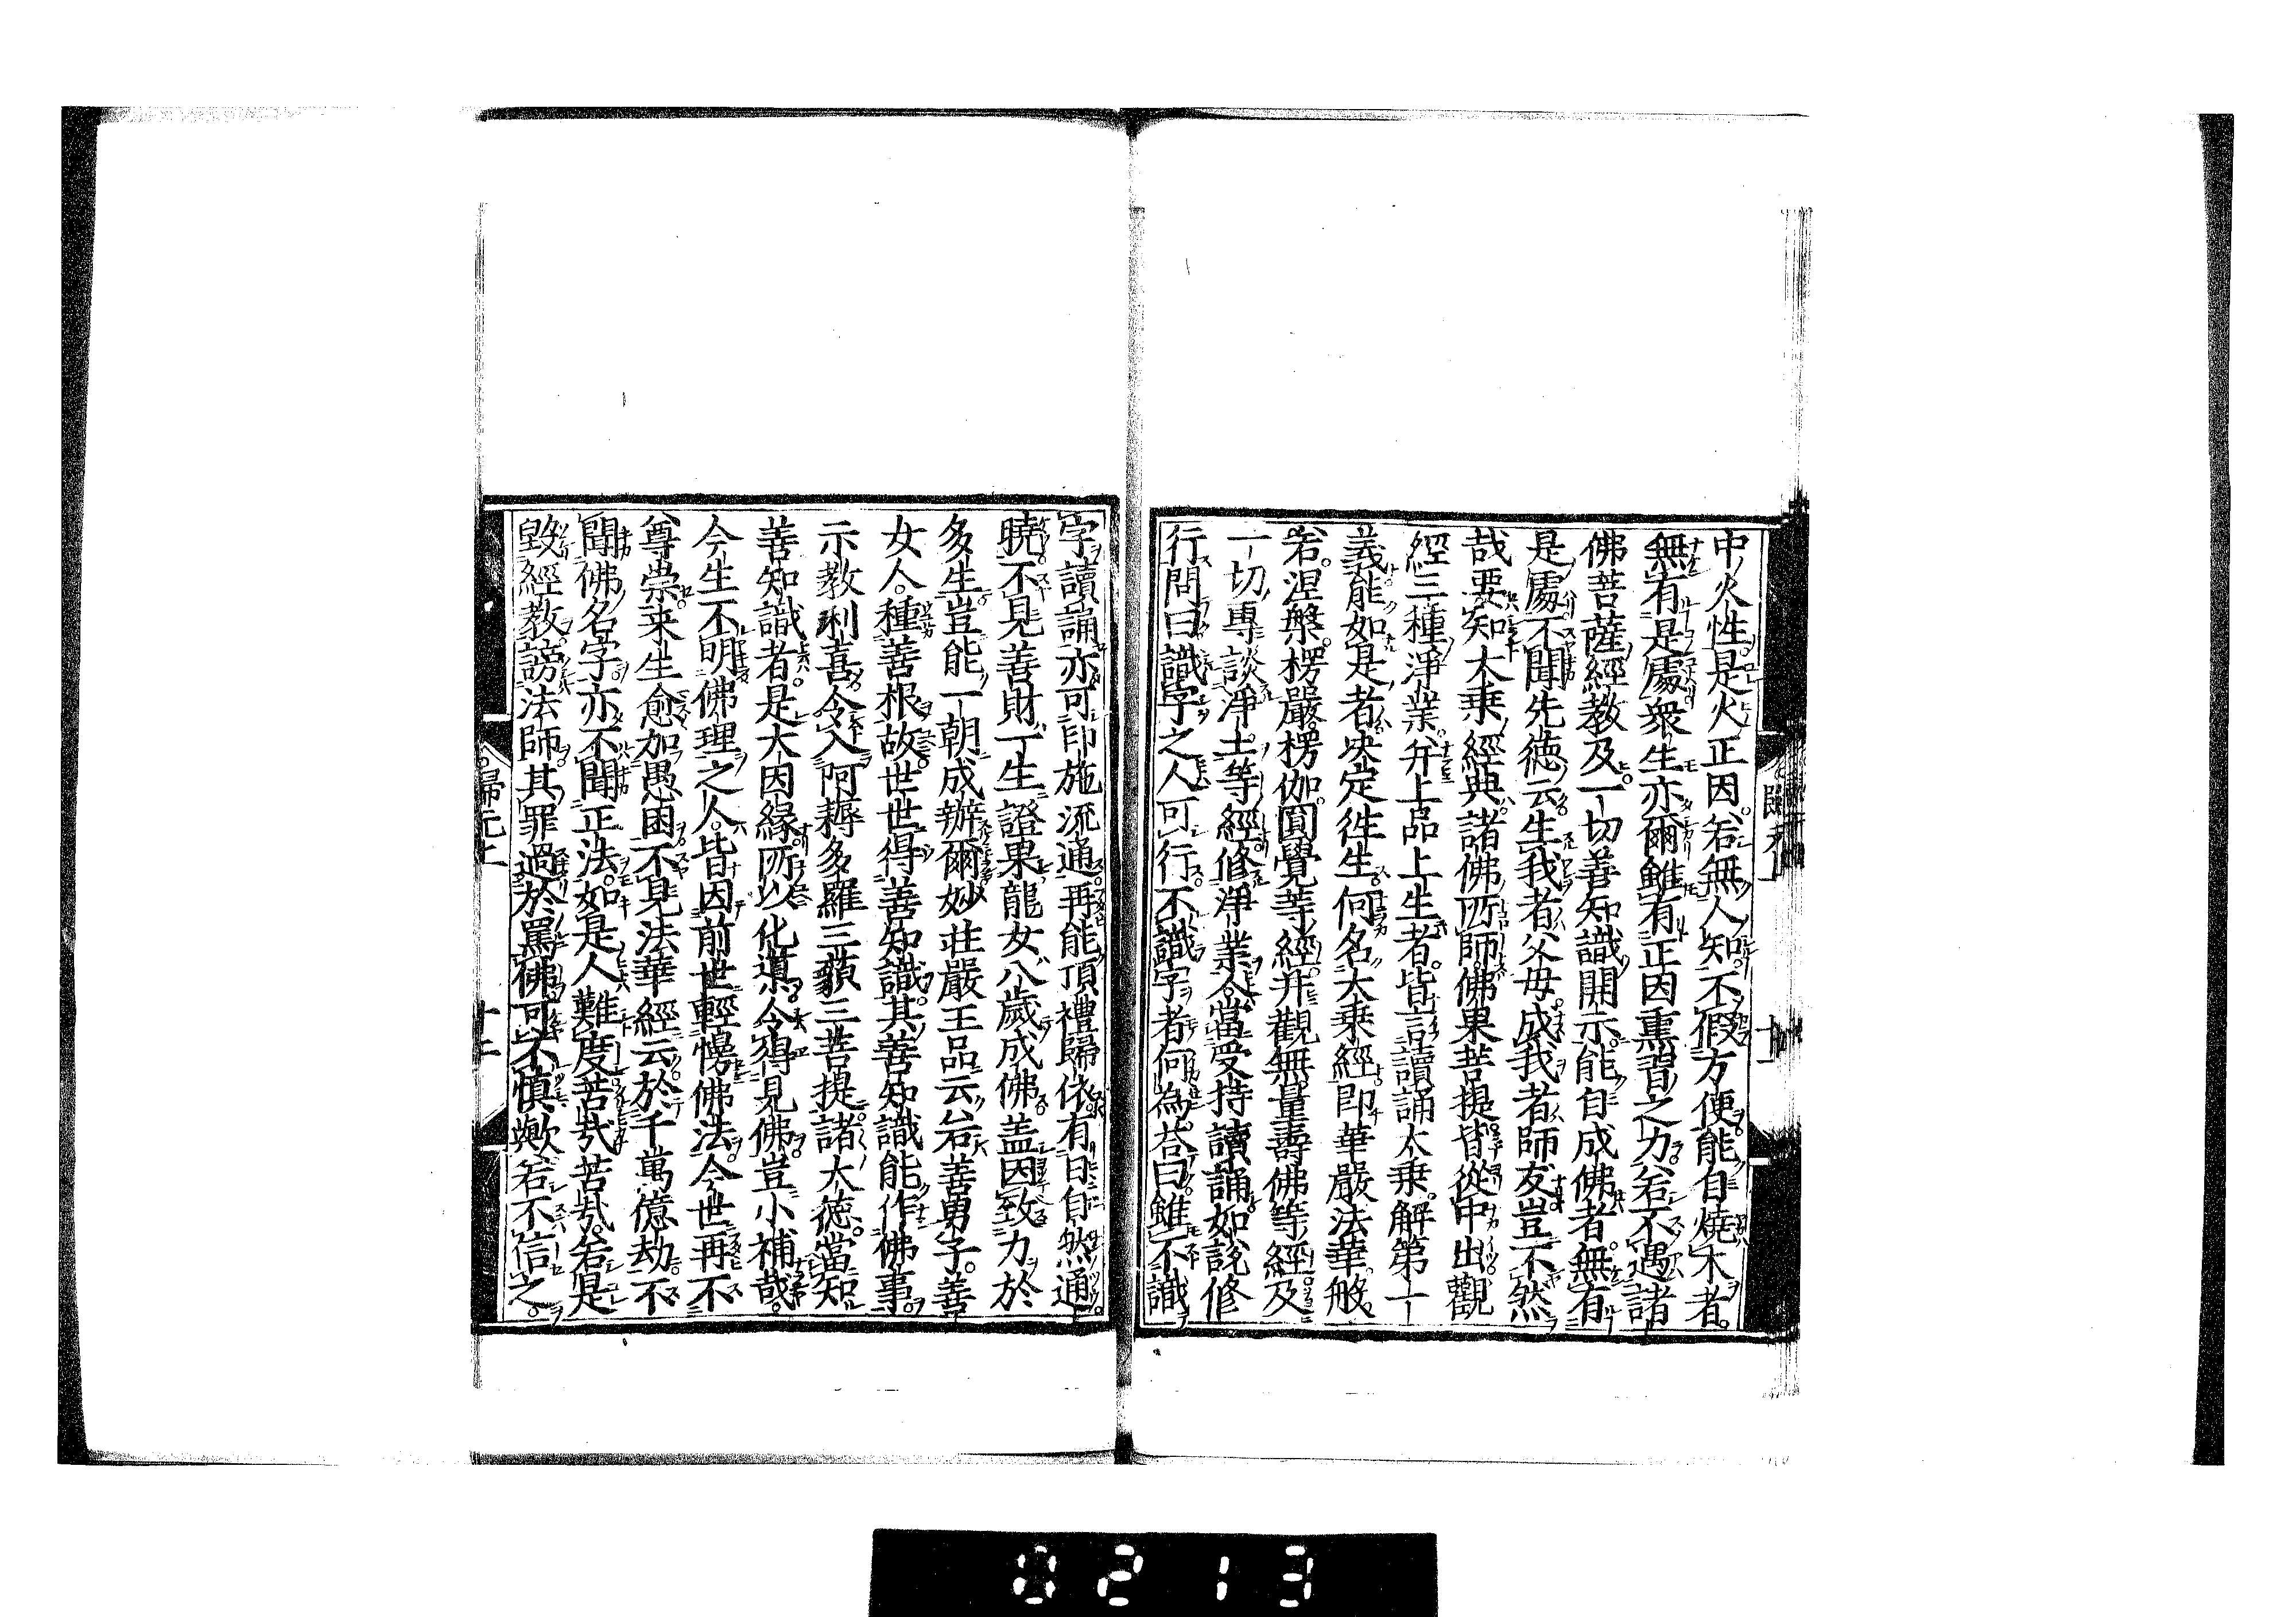 中火性是火正因若無人知不假方便能自燒木者
無有是處衆生亦爾雖有正因熏習之力若不遇諸
佛菩薩經教及一切善知識開示能自成佛者無有
是處不聞先德云生我者父母成我者師友豈不然
哉要知大乘經典諸佛所師佛果菩提皆從中出觀
經三種淨業并上品上生者皆言讀誦大乘解第一
義能如是者决定徃生何名大乘經即華嚴法華般
若涅槃楞嚴楞伽圓覺等經并觀無量壽佛等經及
一切專談淨土等經修淨業人當受持讀誦如說修
行問曰識字之人可行不識字者何為荅曰雖不識
字讀誦亦可印施流通再能頂禮歸依有日自然通
曉不見善財一生證果龍女八歲成佛盖因致力於
多生豈能一朝成辦爾妙莊嚴王品云若善男子善
女人種善根故世世得善知識其善知識能作佛事
示教利喜令入阿耨多羅三藐三菩提諸大德當知
善知識者是大因緣所以化導令得見佛豈小補哉
今生不明佛理之人皆因前世輕慢佛法今世再不
尊崇来生愈加愚困不見法華經云於千萬億劫不
聞佛名字亦不聞正法如是人難度苦哉苦哉若是
毀經教謗法師其罪過於罵佛可不慎歟若不信之
歸元上 十二
0213